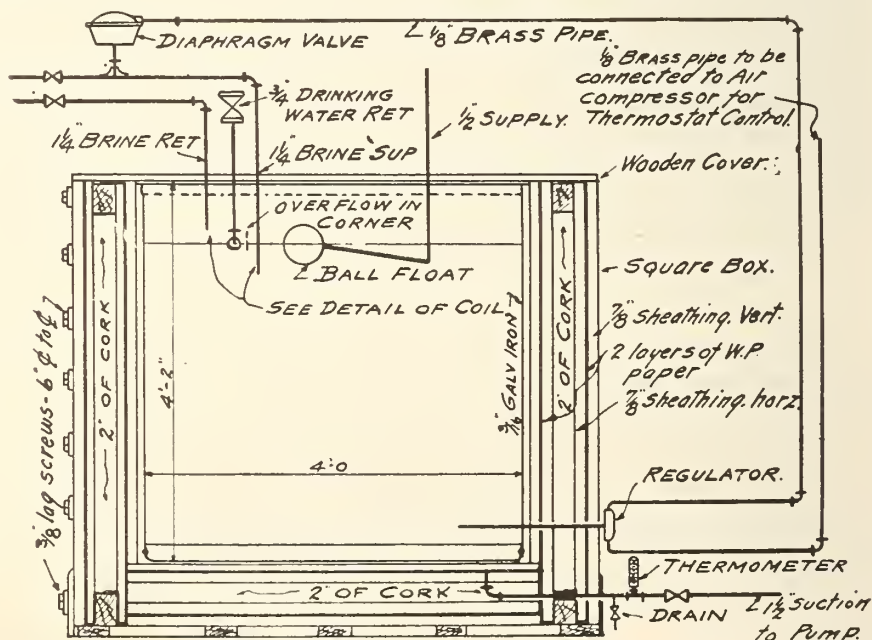 DIAPHRAGM VALVE
1/8" BRASS PIPE.
1/8" BRASS pipe to be
connected to Air
compressor for
Thermostat Control.
3/4" DRINKING
WATER RET
1/2" SUPPLY.
1 1/4" BRINE RET
1 1/4" BRINE SUP
Wooden Cover.
OVERFLOW IN
CORNER
BALL FLOAT
SEE DETAIL OF COIL
Square Box.
7/8" Sheathing. Vert.
2 layers of W.P.
paper
7/8" sheathing. horz.
2" OF CORK
2" OF CORK
3/16" GALV IRON
4'-2"
4'-0
3/8" lag screws - 6" ¢ to ¢
REGULATOR.
THERMOMETER
2" OF CORK
DRAIN
1 1/2" Suction
to Pump.